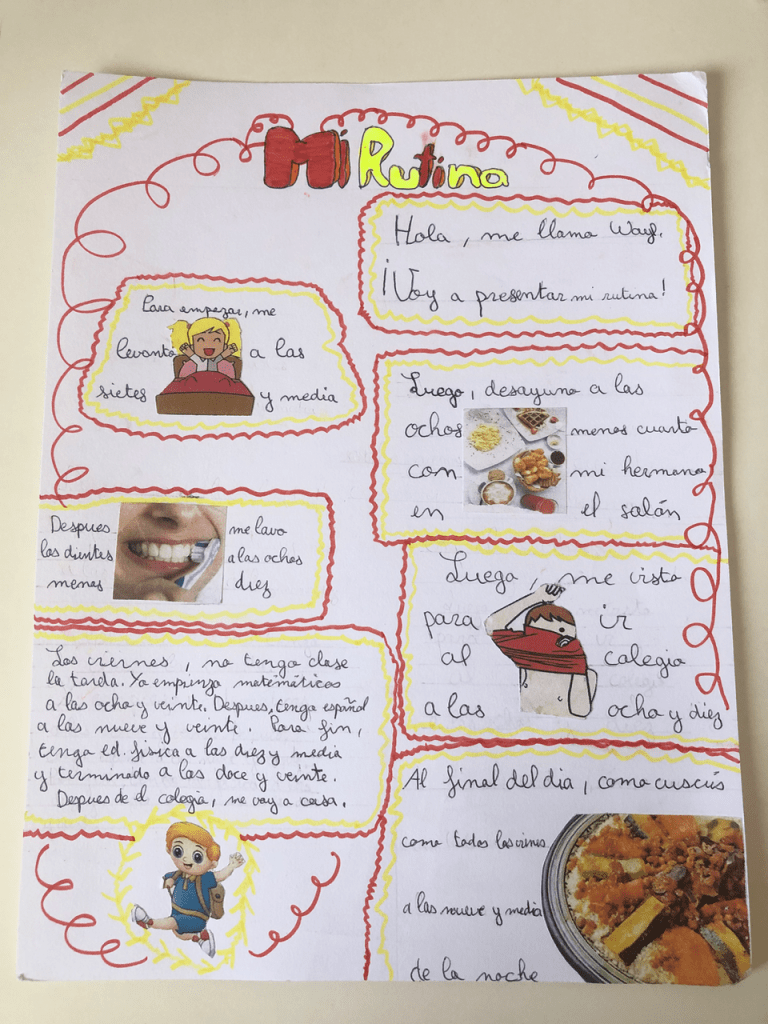 Mi Rutina
Hola, me llamo Wayl.
¡Voy a presentar mi rutina!
Para empezar, me
levanto a las
sietes y media
Luego, desayuno a las
ochos menos cuarto
con mi hermano
en el salón
Despues me lavo
los dientes a las ochos
menos diez
Luego, me visto
para ir
al colegio
a las ocho y diez
Los viernes, no tengo clase
la tarde. Yo empiezo matemáticos
a las ocho y veinte. Despues, tengo español
a las nueve y veinte. Para fin,
tengo ed. fisica a las diez y media
y terminado a las doce y veinte.
Despues de el colegio, me voy a casa.
Al final del dia, como cuscús
como todos los
a las nueve y media
de la noche